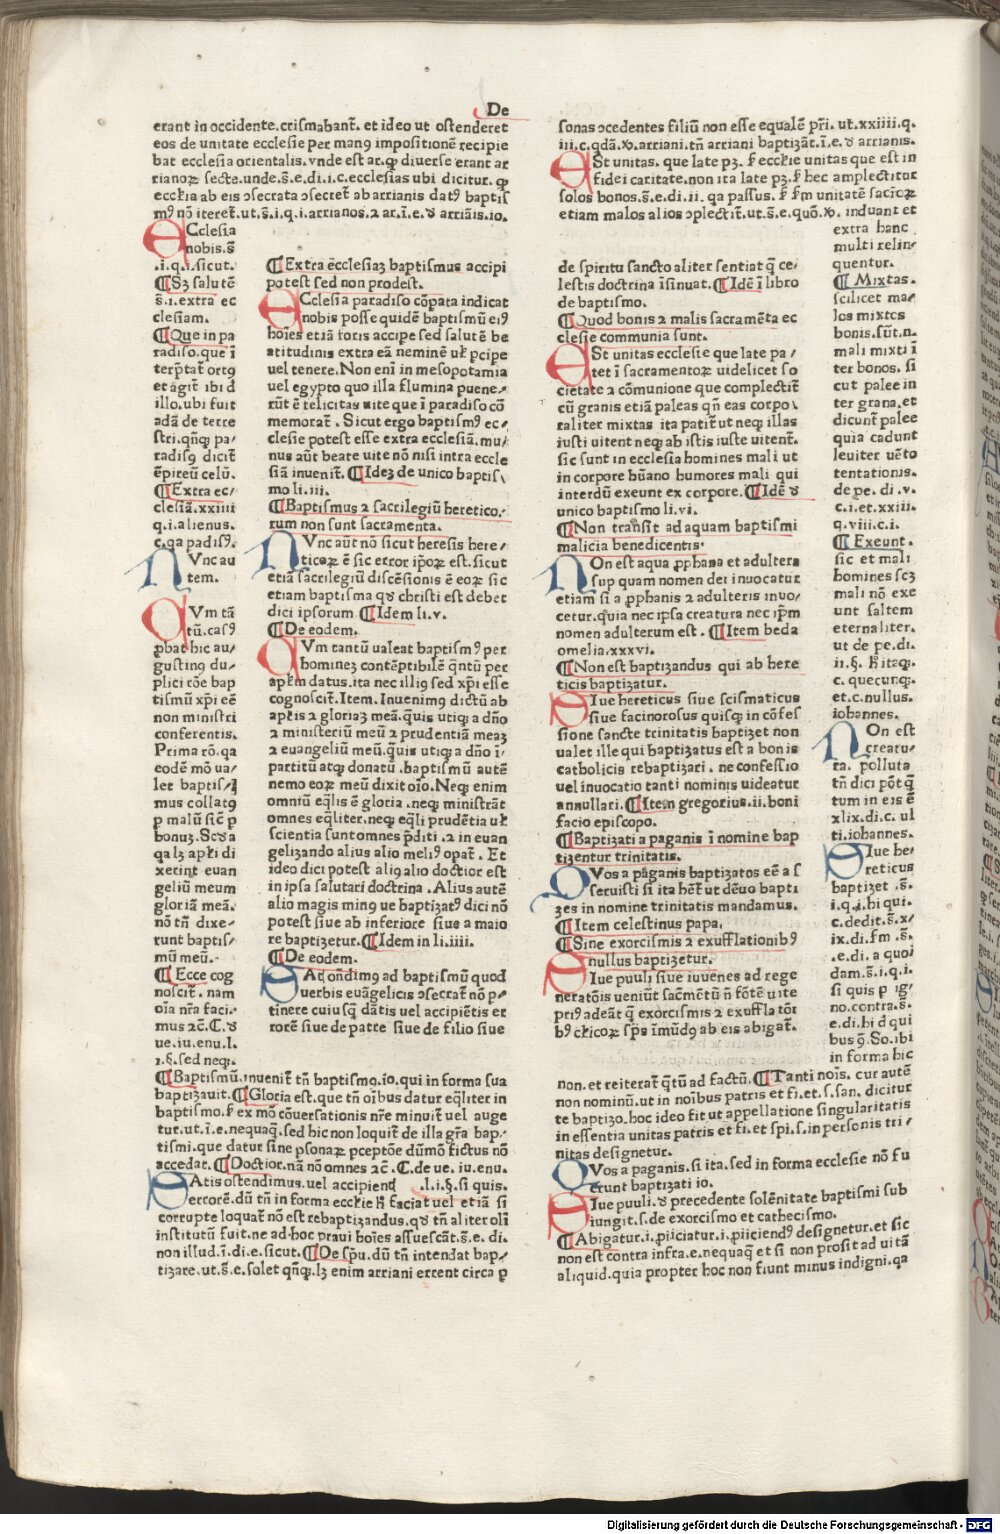 De
erant in occidente.crismabant̄. et ideo ut ostenderet
eos de unitate ecclesie per manꝰ impositionē recipie
bat ecclesia orientalis. vnde est ar.ꝙ diuerse erant ar
rianoꝝ secte.unde.s̄.e.di.i.c.ecclesias ubi dicitur. ꝙ
eccłia ab eis ↄsecrata ↄsecret̄ ab arrianis datꝰ baptis
mꝰ nō iteret̄.ut.s̄.i.q.i.arrianos.⁊ ar.ī.e.ꝺ arriāis.io.
Ecclesia
nobis.s̄
.i.q.i.sicut.
¶Sꝫ salutē
s̄.i.extra ec
clesiam.
¶Que in pa
radiso.que ī
terp̄tat̄ ortꝰ
et agit̄ ibi d
illo.ubi fuit
adā de terre
stri.qn̄qꝫ pa/
radisꝰ dicit̄
ēpireū celū.
¶Extra ec/
clesiā.xxiiii
q.i.alienus.
c.qa padisꝰ.
Nunc au
tem.
Qum tā
tū.casꝰ
ꝓbat hic au/
gustinꝰ du/
plici rōe bap
tismū xp̄i eē
non ministri
conferentis.
Prima rō.qa
eodē mō ua/
let baptis/
mus collatꝰ
p malū sic̄ p
bonuꝫ.Scꝺa
qa lꝫ ap̄łi di
xerint euan
geliū meum
gloriā meā.
nō tn̄ dixe/
runt baptis/
mū meū.
¶Ecce cog
noscit̄. nam
oīa nr̄a faci/
mus ⁊c̄.C.ꝺ
ue.iu.enu.l.
i.§.sed neqꝫ.
¶Extra ēcclesiaꝫ baptismus accipi
potest sed non prodest.
Ecclesia paradiso cōpata indicat
nobis posse quidē baptismū eiꝰ
hoīes etiā foris accipe sed salutē be
atitudinis extra eā neminē uł pcipe
uel tenere. Non enī in mesopotamia
uel egypto quo illa flumina puene/
rūt ē felicitas uite que ī paradiso cō
memorat̄. Sicut ergo baptismꝰ ec/
clesie potest esse extra ecclesiā.mu/
nus aūt beate uite nō nisi intra eccle
siā inuenit̄. ¶Ideꝫ de unico baptis/
mo li.iii.
¶Baptismus ⁊ sacrilegiū heretico/
rum non sunt sacramenta.
Nunc aūt nō sicut heresis here/
ticoꝝ ē sic error ip̄oꝝ est. sicut
etiā sacrilegiū discēsionis ē eoꝝ sic
etiam baptisma qꝺ christi est debet
dici ipsorum ¶Idem li.v.
¶De eodem.
Qum tantū ualeat baptismꝰ per
homineꝫ contēptibilē q̄ntū per
ap̄łm datus.ita nec illiꝰ sed xp̄i esse
cognoscit̄.Item.Inuenimꝰ dictū ab
ap̄łis ⁊ gloriaꝫ meā.quis utiqꝫ a dn̄o
⁊ ministeriū meū ⁊ prudentiā meaꝫ
⁊ euangeliū meū.quis utiqꝫ a dn̄o ī/
partitū atqꝫ donatū.baptismū autē
nemo eoꝝ meū dixit oīo.Neqꝫ enim
omniū eq̄lis ē gloria.neqꝫ ministrāt
omnes eq̄liter.neqꝫ eq̄li prudētia uł
scientia sunt omnes p̄diti.⁊ in euan
gelizando alius alio meliꝰ opat̄. Et
ideo dici potest aliꝰ alio doctior est
in ipsa salutari doctrina. Alius autē
alio magis minꝰ ue baptizatꝰ dici nō
potest siue ab inferiore siue a maio
re baptizetur.¶Idem in li.iiii.
¶De eodem.
Satis ondimꝰ ad baptismū quod
uerbis euāgelicis ↄsecrat̄ nō p/
tinere cuiusq̄ dātis uel accipiētis er
rorē siue de patre siue de filio siue
¶Baptismū.inuenit̄ tn̄ baptismꝰ.io.qui in forma sua
baptizauit. ¶Gloria est.que tn̄ oībus datur eq̄liter in
baptismo.ł ex mō cōuersationis nr̄e minuit̄ uel auge
tur.ut.ī.e.nequaqꝫ.sed hic non loquit̄ de illa gr̄a bap/
tismi.que datur sine ꝑsonaꝝ pceptōe dūmō fictus nō
accedat. ¶Doctior.nā nō omnes ⁊c̄. C.de ue. iu.enu.
Satis ostendimus.uel accipiend .l.i.§.si quis.
errorē.dū tn̄ in forma eccłie h̄ faciat uel etiā si
corrupte loquat̄ nō est rebaptizandus.qꝺ tn̄ aliter olī
institutū fuit.ne ad hoc praui hoīes assuescāt.s̄.e. di.
non illud.ī.di.e.sicut. ¶De sp̄u.dū tn̄ intendat bap/
tizare.ut.s̄.e.solet qn̄qꝫ.lꝫ enim arriani errent circa p
sonas ↄcedentes filiū non esse equalē pr̄i. ut.xxiiii.q.
iii.c.qdā.xꝺ.arriani.tn̄ arriani baptizāt.ī.e.ꝺ arrianis.
Est unitas. que late pꝫ.ł eccłie unitas que est in
fidei caritate.non ita late pꝫ.ł hec amplectitur
solos bonos.s̄.e.di.ii.qa passus.ł s̄m unitatē sac̄roꝝ
etiam malos alios ↄplectit̄.ut.s̄.e.quō.xꝺ. induant et
de spiritu sancto aliter sentiat q̄ ce/
lestis doctrina īsinuat.¶Idē ī libro
de baptismo.
¶Quod bonis ⁊ malis sacramēta ec
clesie communia sunt.
Est unitas ecclesie que late pa/
tet ī sacramentoꝝ uidelicet so
cietate ⁊ cōmunione que complectit̄
cū granis etiā paleas qn̄ eas corpo/
raliter mixtas ita patit̄ ut neqꝫ illas
iusti uitent neqꝫ ab istis iuste uitent̄.
sic sunt in ecclesia homines mali ut
in corpore hūano humores mali qui
interdū exeunt ex corpore.¶Idē ꝺ
unico baptismo li.vi.
¶Non transit ad aquam baptismi
malicia benedicentis.
Non est aqua ꝓphana et adultera
sup quam nomen dei inuocatur
etiam si a ꝓphanis ⁊ adulteris inuo/
cetur.quia nec ipsa creatura nec ip̄m
nomen adulterum est. ¶Item beda
omelia.xxxvi.
¶Non est baptizandus qui ab here
ticis baptizatur.
Siue hereticus siue scismaticus
siue facinorosus quisqꝫ in cōfes
sione sancte trinitatis baptizet non
ualet ille qui baptizatus est a bonis
catholicis rebaptizari. ne confessio
uel inuocatio tanti nominis uideatur
annullari.¶Item gregorius.ii.boni
facio episcopo.
¶Baptizati a paganis ī nomine bap
tizentur trinitatis.
Quos a paganis baptizatos eē a s
seruisti si ita het̄ ut dēuo bapti
zes in nomine trinitatis mandamus.
¶Item celestinus papa.
¶Sine exorcismis ⁊ exufflationibꝰ
nullus baptizetur.
Siue puuli siue iuuenes ad rege
neratōis ueniūt sacm̄ētū n̄ fōtē uite
priꝰ adeāt q̄ exorcismis ⁊ exufflatōi
bꝰ cłicoꝝ sp̄s īmūdꝰ ab eis abigat̄.
extra hanc
multi relin/
quentur.
¶Mixtas.
scilicet ma/
los mixtos
bonis.sūt.n.
mali mixti ī
ter bonos. si
cut palee in
ter grana.et
dicunt palee
quia cadunt
leuiter uēto
tentationis.
de pe. di.v.
c.i.et.xxiii.
q.viii.c.i.
¶Exeunt.
sic et mali
homines scꝫ
mali nō exe
unt saltem
eternaliter.
ut de pe.di.
ii.§. h̄ itaqꝫ.
c. quecunqꝫ.
et.c.nullus.
iohannes.
Non est
creatu/
ra. polluta
tn̄ dici pōt q̄
tum in eis ē
xlix.di.c. ul
ti.iohannes.
Siue he/
reticus
baptizet .s̄.
i.q.i.hi qui.
c.dedit.s̄.x/
ix.di.s̄m .s̄.
.e.di. a quoi
dam.s̄.i.q.i.
si quis p ig/
no.contra.s̄.
e.di.hi d qui
bus q̄.So.ibi
in forma hic
non.et reiterat̄ q̄tū ad factū. ¶Tanti noīs. cur autē
non nominū.ut in noībus patris et fi.et.s.san. dicitur
te baptizo.hoc ideo fit ut appellatione singularitatis
in essentia unitas patris et fi.et spi.s.in personis tri/
nitas designetur.
Quos a paganis.si ita.sed in forma ecclesie nō fu
erunt baptizati io.
Siue puuli.ꝺ precedente solēnitate baptismi sub
iungit.s.de exorcismo et cathecismo.
¶Abigatur.i.ꝓiiciatur.i.ꝓiiciendꝰ designetur.et sic
non est contra infra.e.nequaqꝫ et si non prosit ad uitā
aliquid.quia propter hoc non fiunt minus indigni.qa
Digitalisierung gefördert durch die Deutsche Forschungsgemeinschaft - DFG